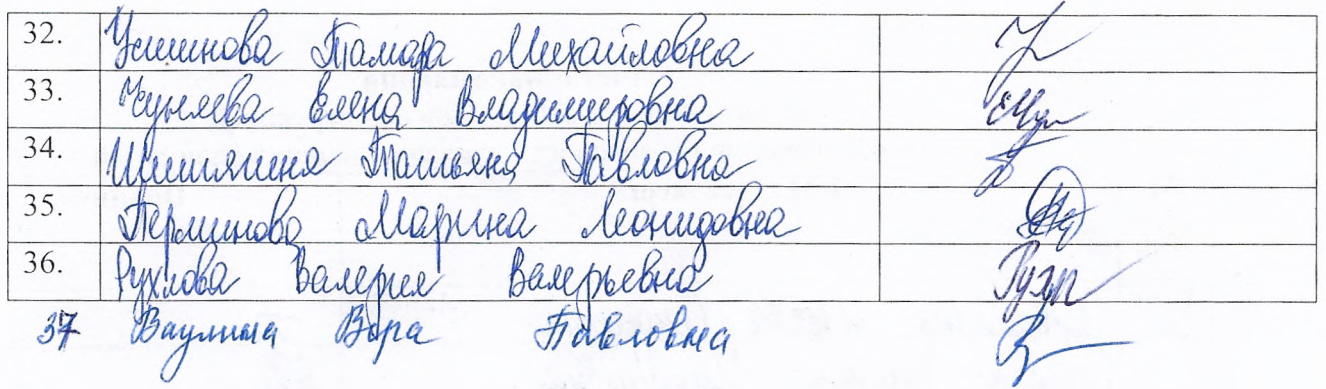 32. Усминова Тамара Михайловна
33. Чуняева Елена Владимировна
34. Шишлягина Татьяна Павловна
35. Перминова Марина Леонидовна
36. Рухлова Валерия Валерьевна
37 Ваулина Вера Павловна